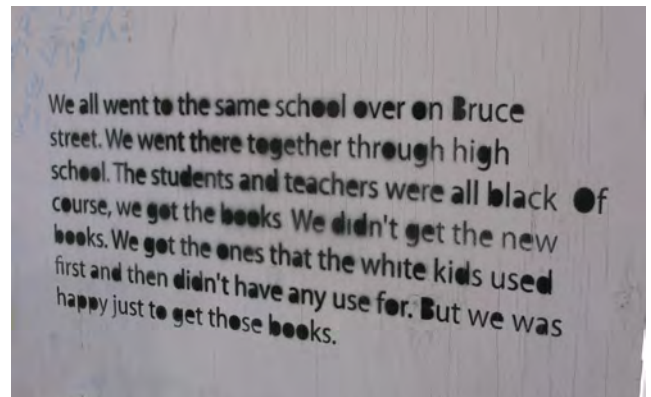 We all went to the same school over on Bruce
street. We went there together through high
school. The students and teachers were all black Of
course, we got the books We didn't get the new
books. We got the ones that the white kids used
first and then didn't have any use for. But we was
happy just to get those books.